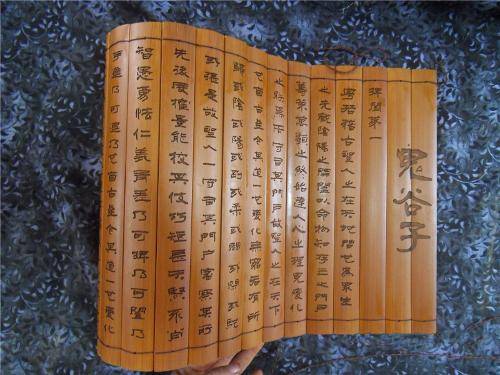 鬼谷子
捭闔第一
粵若稽古聖人之在天地間也為眾生
之先觀陰陽之開闔以命物知存亡之門戶
籌策萬類之終始達人心之理見變化
之朕焉而守司其門戶故聖人之在天下
也自古至今其道一也變化無窮各有所
歸或陰或陽或柔或剛或開或閉或弛
或張是故聖人一守司其門戶審察其所
先後度權量能校其伎巧短長夫賢不肖
智愚勇怯仁義有差乃可捭乃可闔乃
乃可乃也自古至今其道一也變化